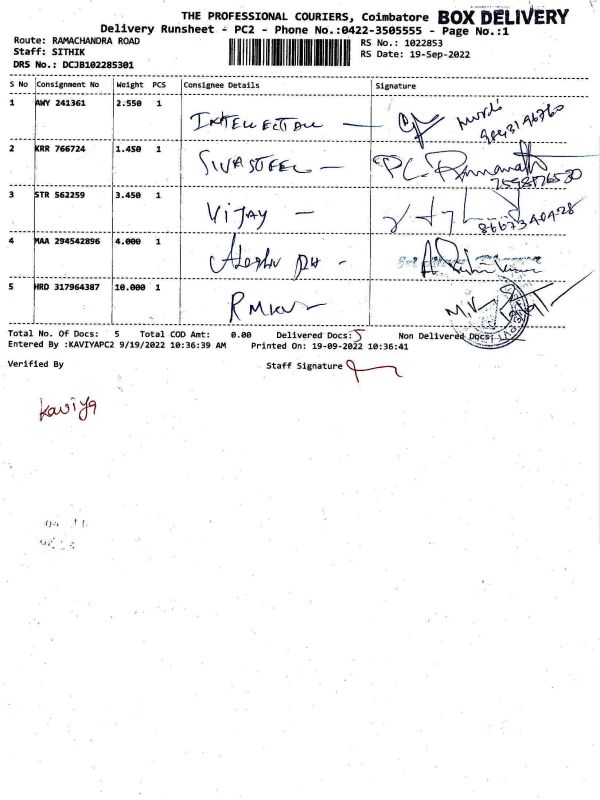 THE PROFESSIONAL COURIERS, Coimbatore BOX DELIVERY
Delivery Runsheet - PC2 - Phone No.:0422-3505555 - Page No.:1
Route: RAMACHANDRA ROAD RS No.: 1022853
Staff: SITHIK RS Date: 19-Sep-2022
DRS No.: DCJB102285301
S No Consignment No Weight PCS Consignee Details Signature
1 AWY 241361 2.550 1
2 KRR 766724 1.450 1 SIVA STEEL -
3 STR 562259 3.450 1 VIJAY -
4 MAA 294542896 4.000 1
5 HRD 317964387 10.000 1
Total No. Of Docs: 5 Total COD Amt: 0.00 Delivered Docs: 5 Non Delivered Docs:
Entered By :KAVIYAPC2 9/19/2022 10:36:39 AM Printed On: 19-09-2022 10:36:41
Verified By Staff Signature
Kaviya